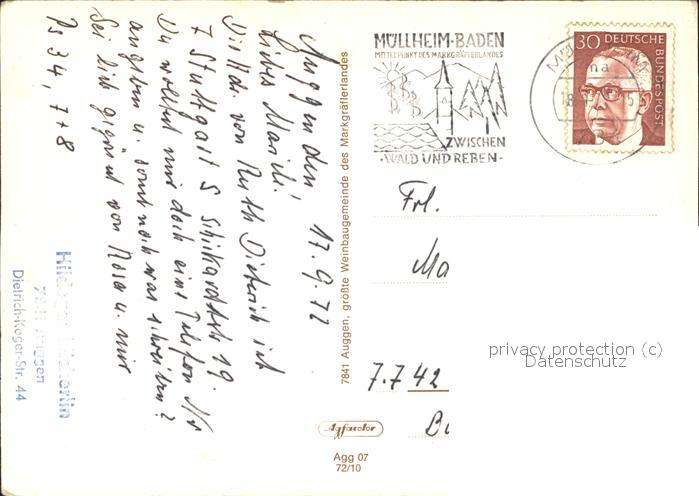 Auggen den,
17.9.72
Liebes Mareili
Die Adr. von Ruth Dieterich ist
7 Stuttgart S Schickardtstr 19.
Du wolltest mir doch eine Telefon Nr
angeben u. sonst noch was schreiben?
Sei lieb gegrüsst von Rosa u. mir
Ps 34, 7+8
7841 Auggen
Dietrich-Koger-Str. 44
7841 Auggen, größte Weinbaugemeinde des Markgräflerlandes
Agfacolor
Agg 07
72/10
MÜLLHEIM·BADEN
MITTELPUNKT DES MARKGRÄFLERLANDES
ZWISCHEN
·WALD UND REBEN·
na
18
30 DEUTSCHE
BUNDESPOST
Frl.
Ma
7.7 42
privacy protection (c)
Datenschutz